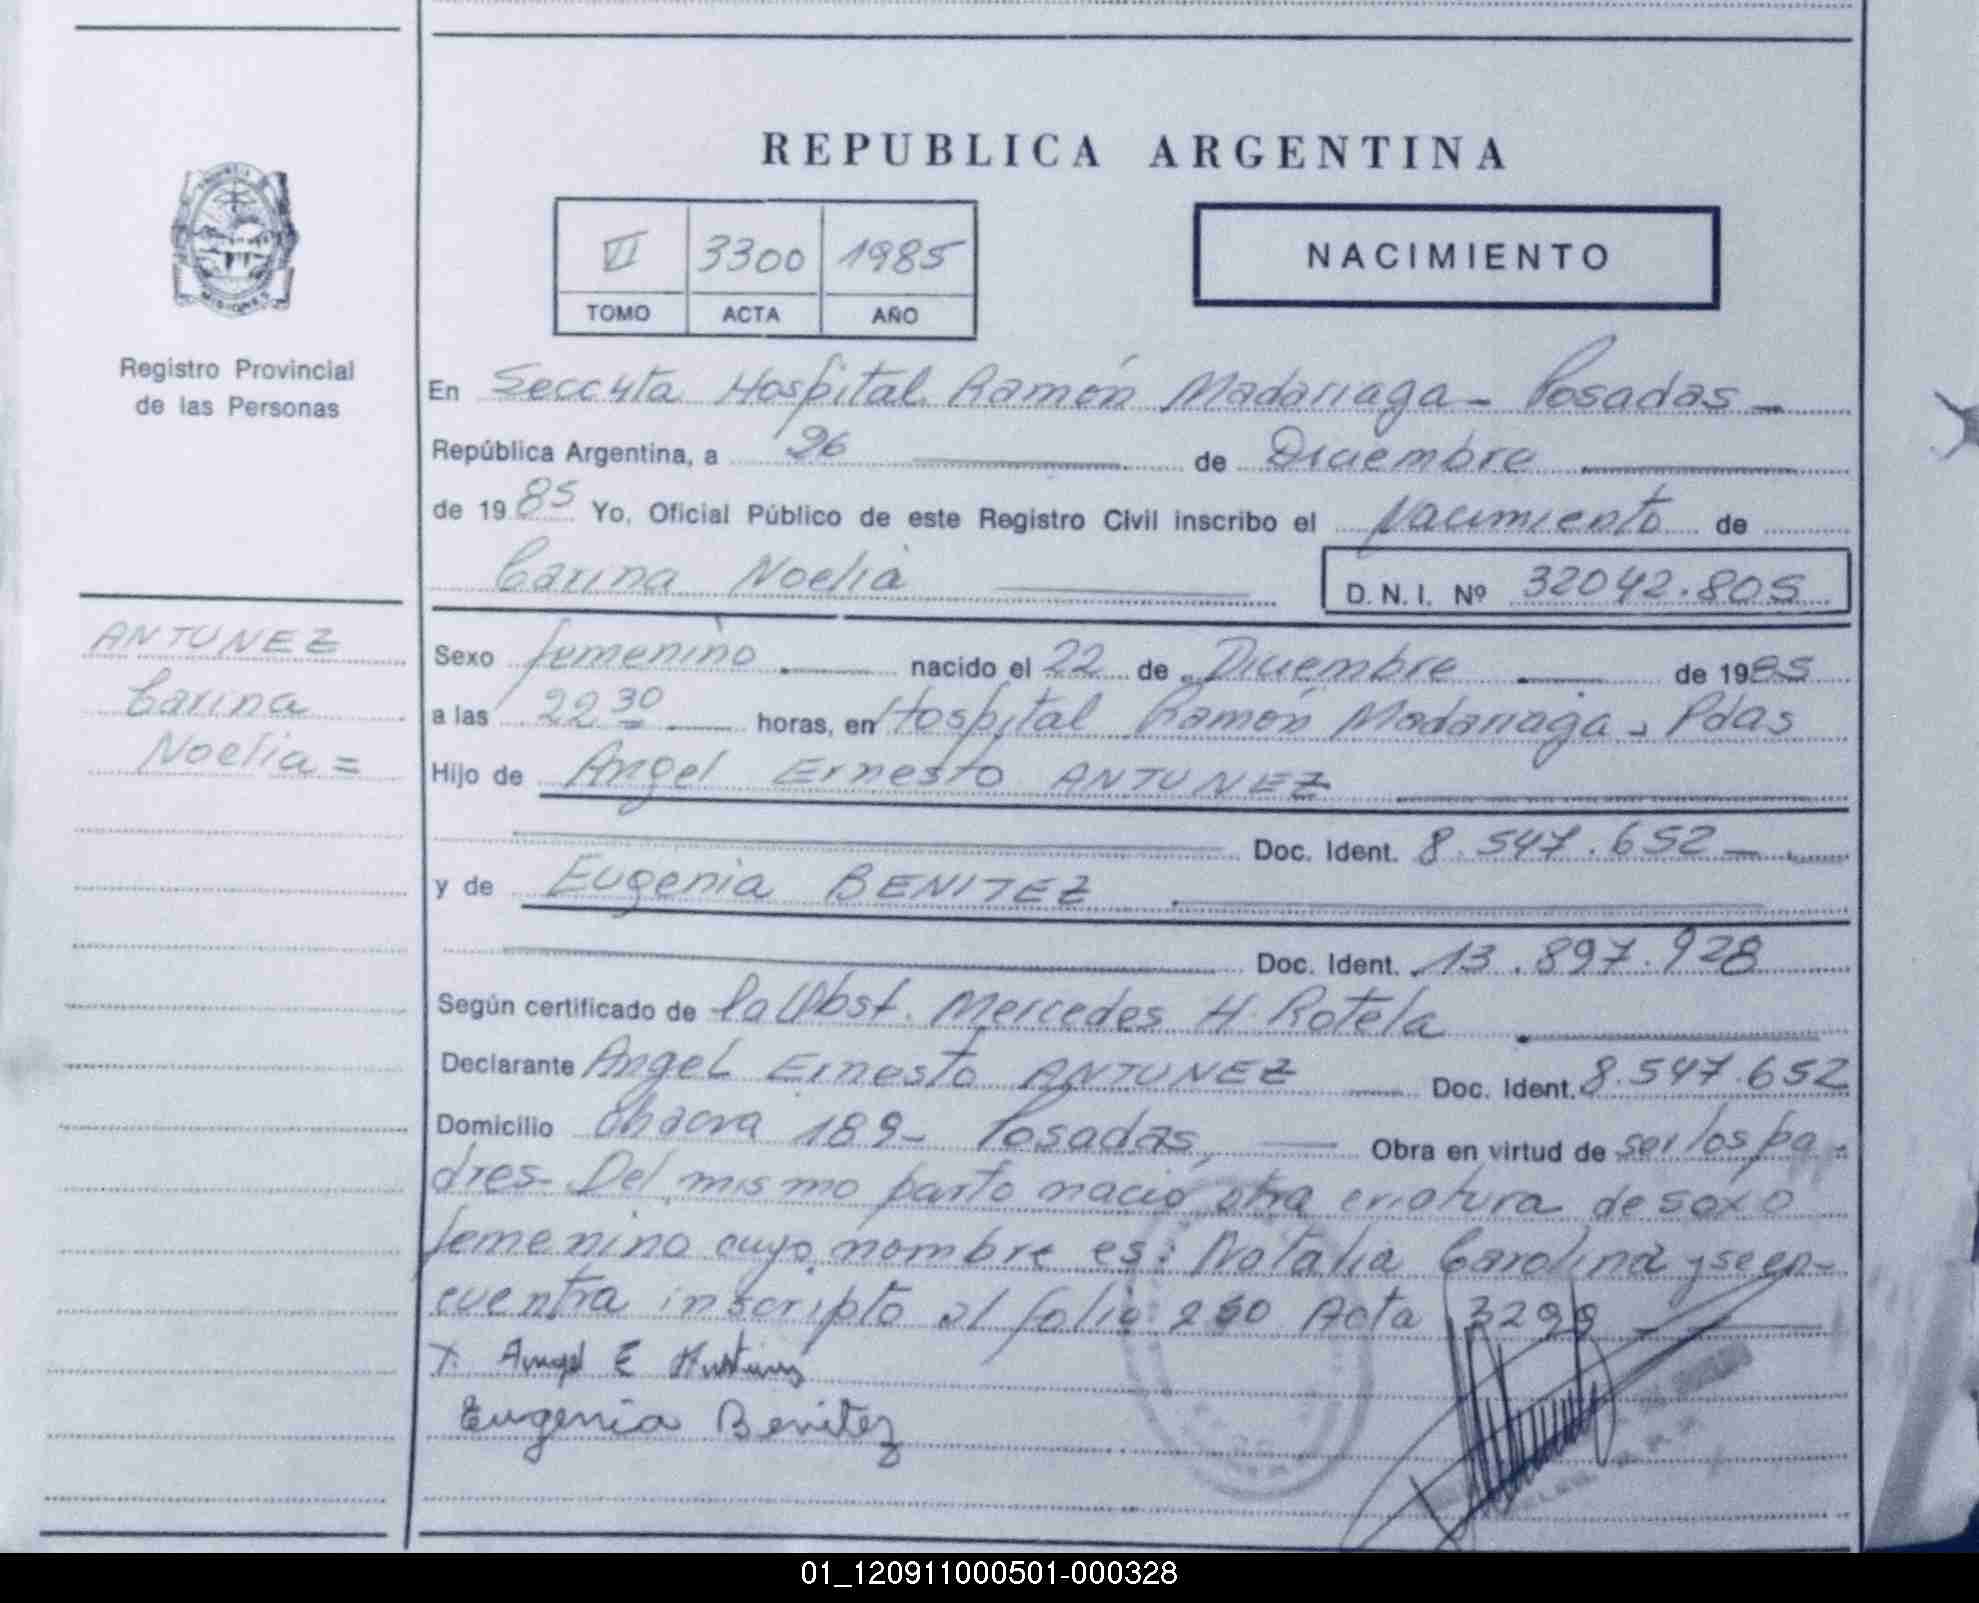 REPUBLICA ARGENTINA
VI 3300 1985
TOMO ACTA AÑO
NACIMIENTO
MISIONES
Registro Provincial
de las Personas
En Secc 4ta Hospital Ramón Madariaga - Posadas -
República Argentina, a 26 de Diciembre
de 1985 Yo, Oficial Público de este Registro Civil inscribo el Nacimiento de
Carina Noelia
D. N. I. Nº 32042.805
ANTUNEZ
Carina
Noelia =
Sexo femenino nacido el 22 de Diciembre de 1985
a las 22 30 horas, en Hospital Ramón Madariaga - Pdas
Hijo de Angel Ernesto ANTUNEZ
Doc. Ident. 8.547.652
y de Eugenia BENITEZ
Doc. Ident. 13.897.928
Según certificado de la Obst. Mercedes H. Rotela
Declarante Angel Ernesto ANTUNEZ Doc. Ident. 8.547.652
Domicilio Chacra 189- Posadas, Obra en virtud de ser los pa-
dres- Del mismo parto nació otra criatura de sexo
femenino cuyo nombre es: Natalia Carolina y se en-
cuentra inscripto al folio 250 Acta 3299
X. Angel E Antunez
Eugenia Benitez
01_120911000501-000328